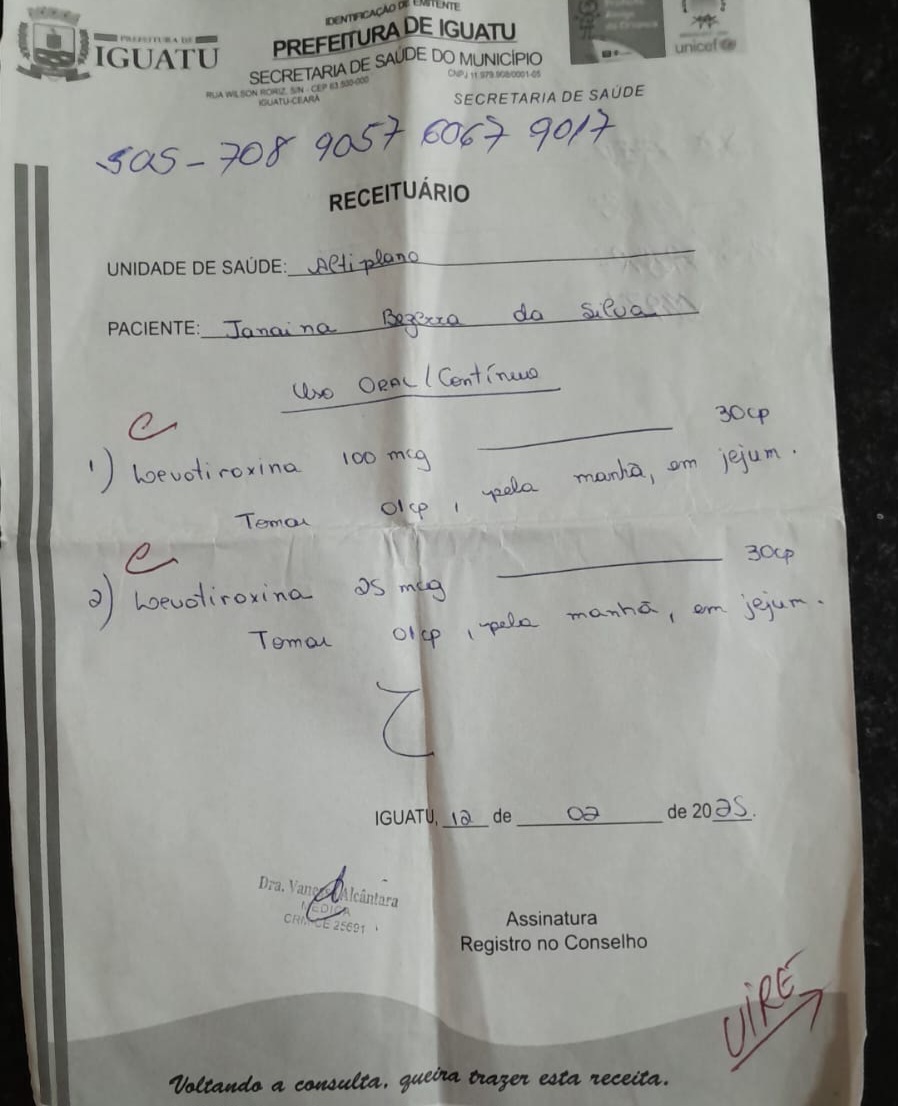 IDENTIFICAÇÃO DE EMITENTE
PREFEITURA DE
IGUATU
PREFEITURA DE IGUATU
SECRETARIA DE SAÚDE DO MUNICÍPIO
CNPJ 11.979.908/0001-05
RUA WILSON RORIZ, S/N - CEP 63.500-000
IGUATU-CEARÁ
SECRETARIA DE SAÚDE
unicef
SUS - 708 9057 6067 9017
RECEITUÁRIO
UNIDADE DE SAÚDE: Altiplano
PACIENTE: Janaina Bezerra da Silva
Uso ORAL/Contínuo
1) Levotiroxina 100 mcg 30cp
Tomar 01cp, pela manhã, em jejum.
2) Levotiroxina 25 mcg 30cp
Tomar 01cp, pela manhã, em jejum.
IGUATU, 12 de 02 de 2025.
Dra. Alcântara
MÉDICA
CRM-CE 25691
Assinatura
Registro no Conselho
VIRE
Voltando a consulta, queira trazer esta receita.